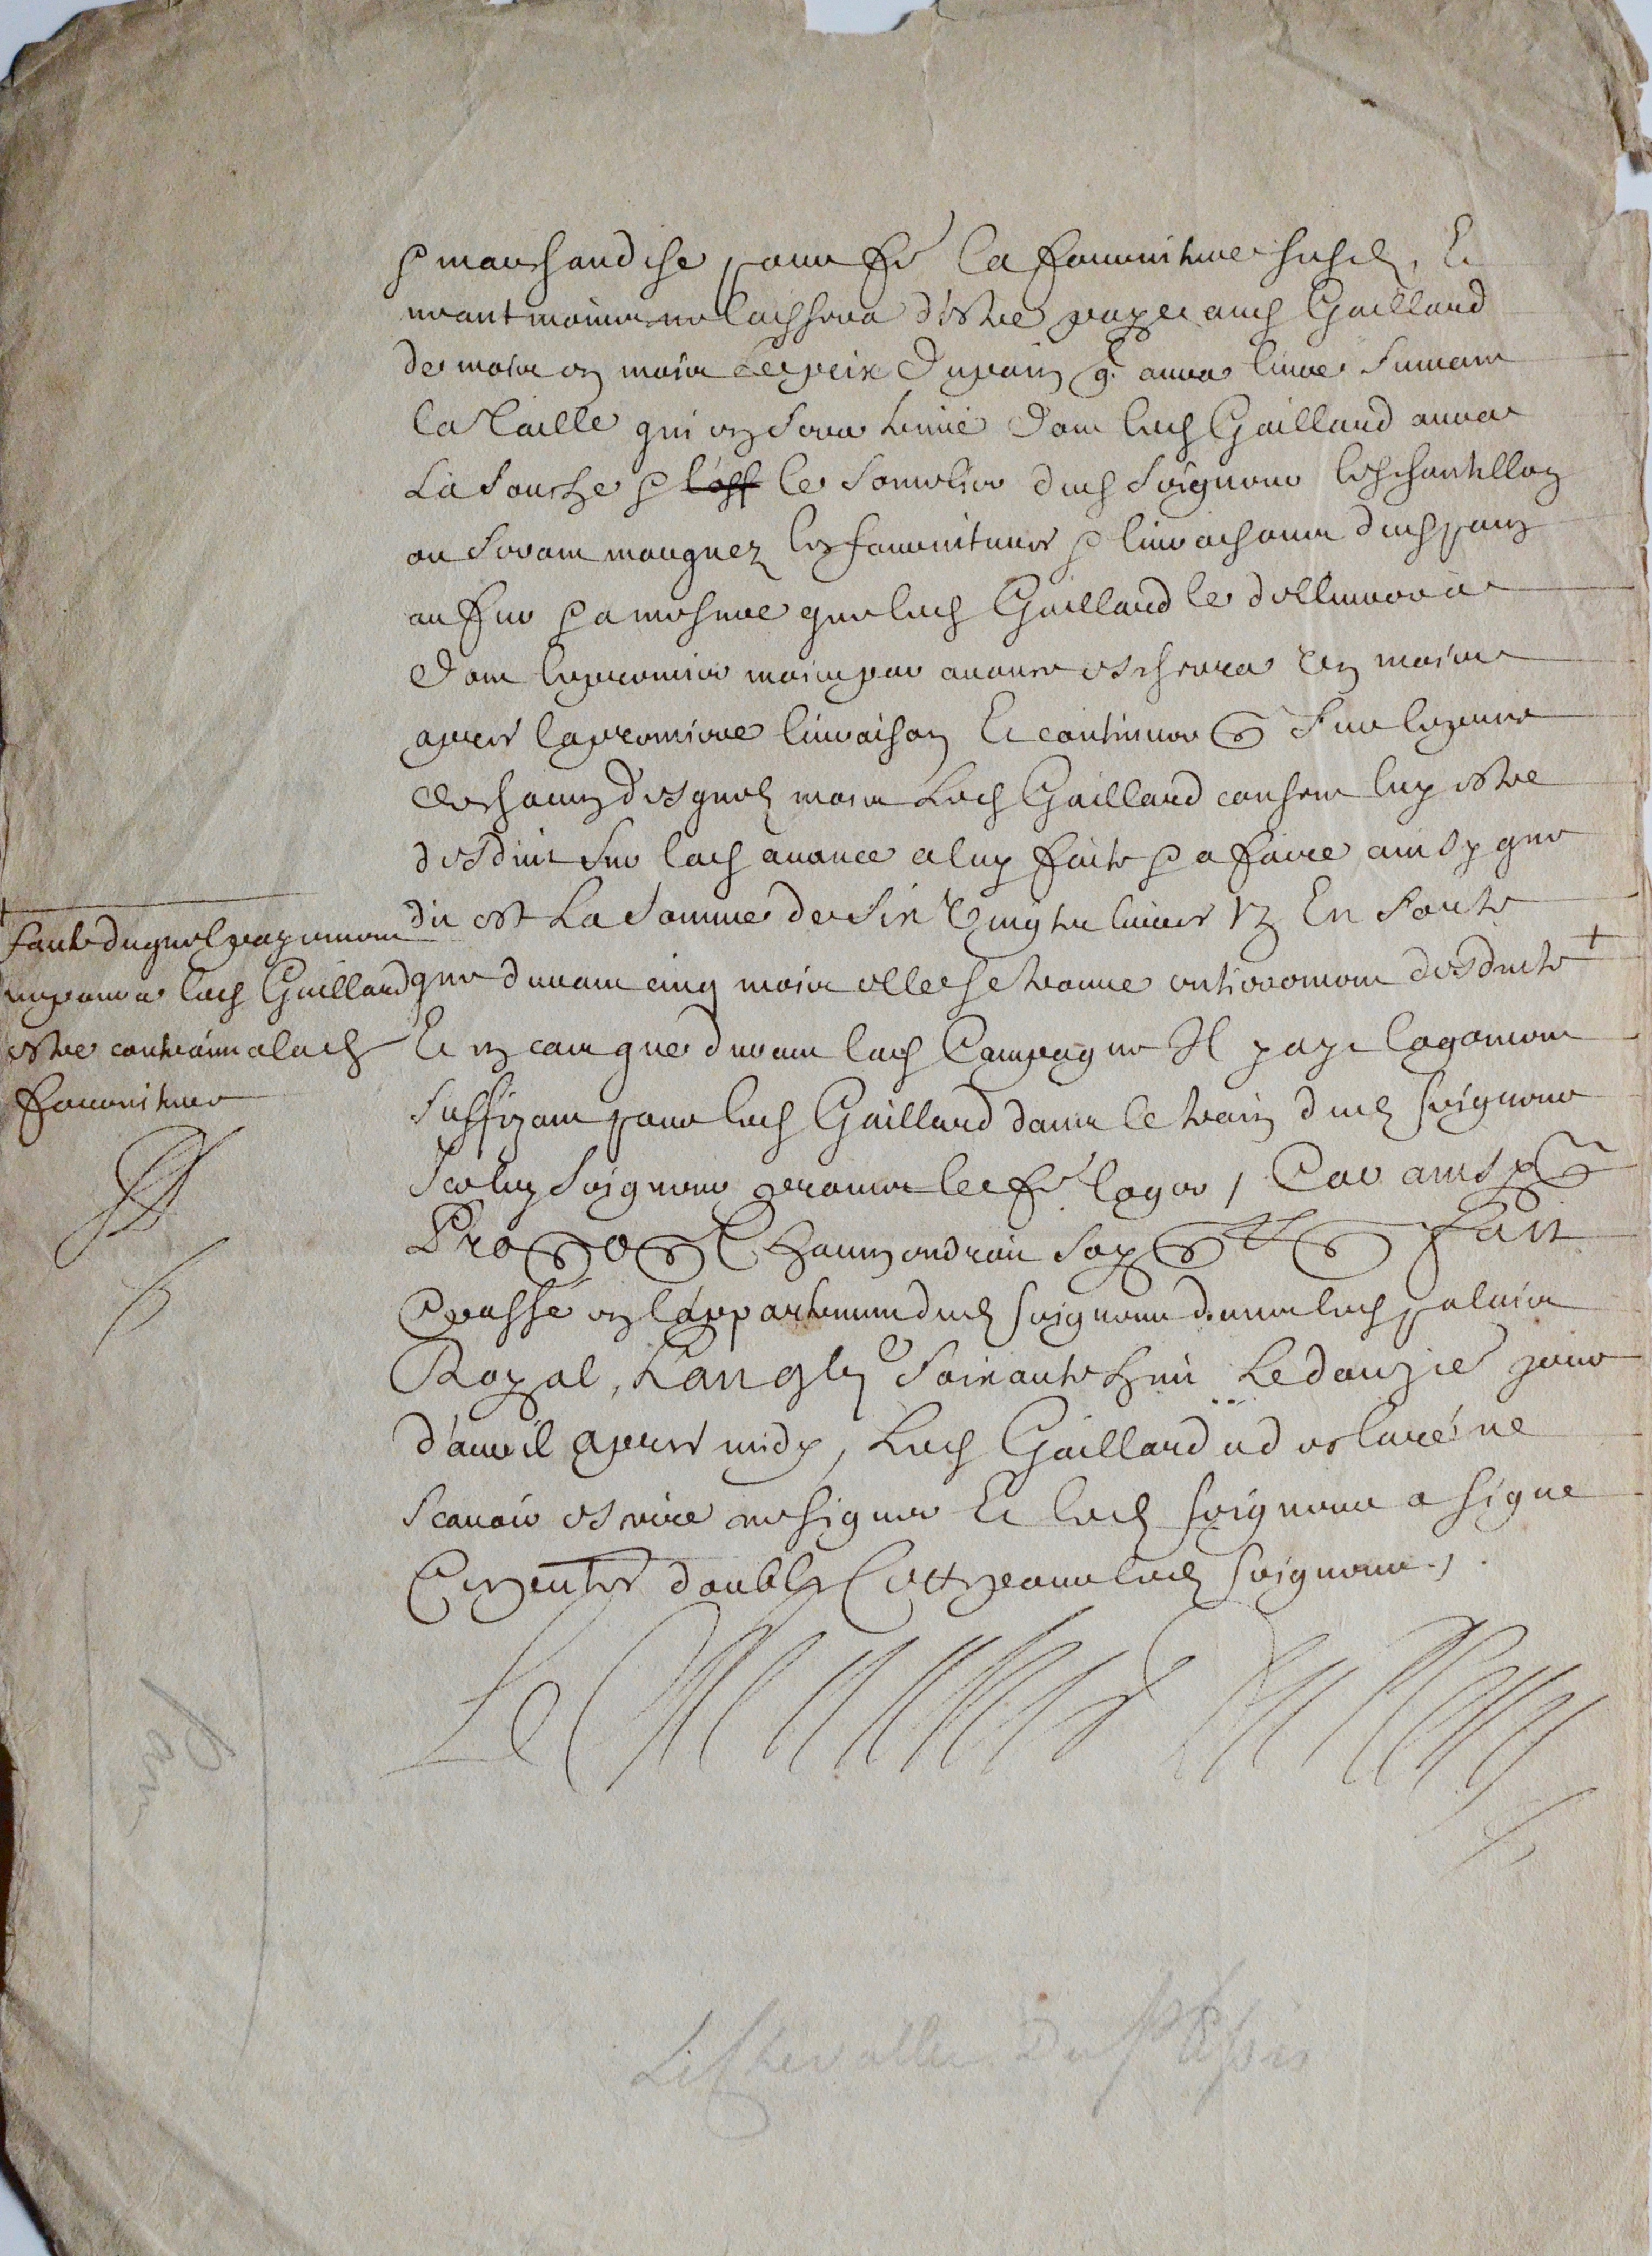 marchandise pour fe la fourniture susd, Et
neantmoins ne laissera d'estre payé aud Gaillard
de mois en mois Le prix Du pain q. aura livré suivant
la Taille qui en sera tenüe Dont led Gaillard aura
La souche & l'off le somelier dud seigneur leschantillon
ou seront marquez les fournitures & livraisons dud pain
au fur & a mesure que led Gaillard le dellivrera
Dont le premier mois par avance escherra Un mois
apres la premiere livraison Et continuer Sur le prix
de chacun desquels mois Led Gaillard consent luy estre
desduit sur lad avance a luy faite & a faire ainsy que
dit est La Somme de Six Vingts livres tz En sorte
que durant cinq mois elle se trouve entierement desduite +
Et en cas que durant lad Campagne Il paye logement
suffizant pour led Gaillard dans le train dud seigneur
Iceluy seigneur promet le fe loger, Car ainsy
Pro Chacun endroit soy Fait
& passé en l'appartement dud seigneur dans led palais
Royal, L'an gbj soixante huit Le douzie jour
d'avril apres midy, Led Gaillard a declaré ne
scavoir escrire ne signer Et led seigneur a signé
Ces pntes doubles Cette pour led seigneur
Le
Faute duquel payement
ne poura led Gaillard
estre contraint a lad
fourniture
pain
Le Chevallier Du Plessis